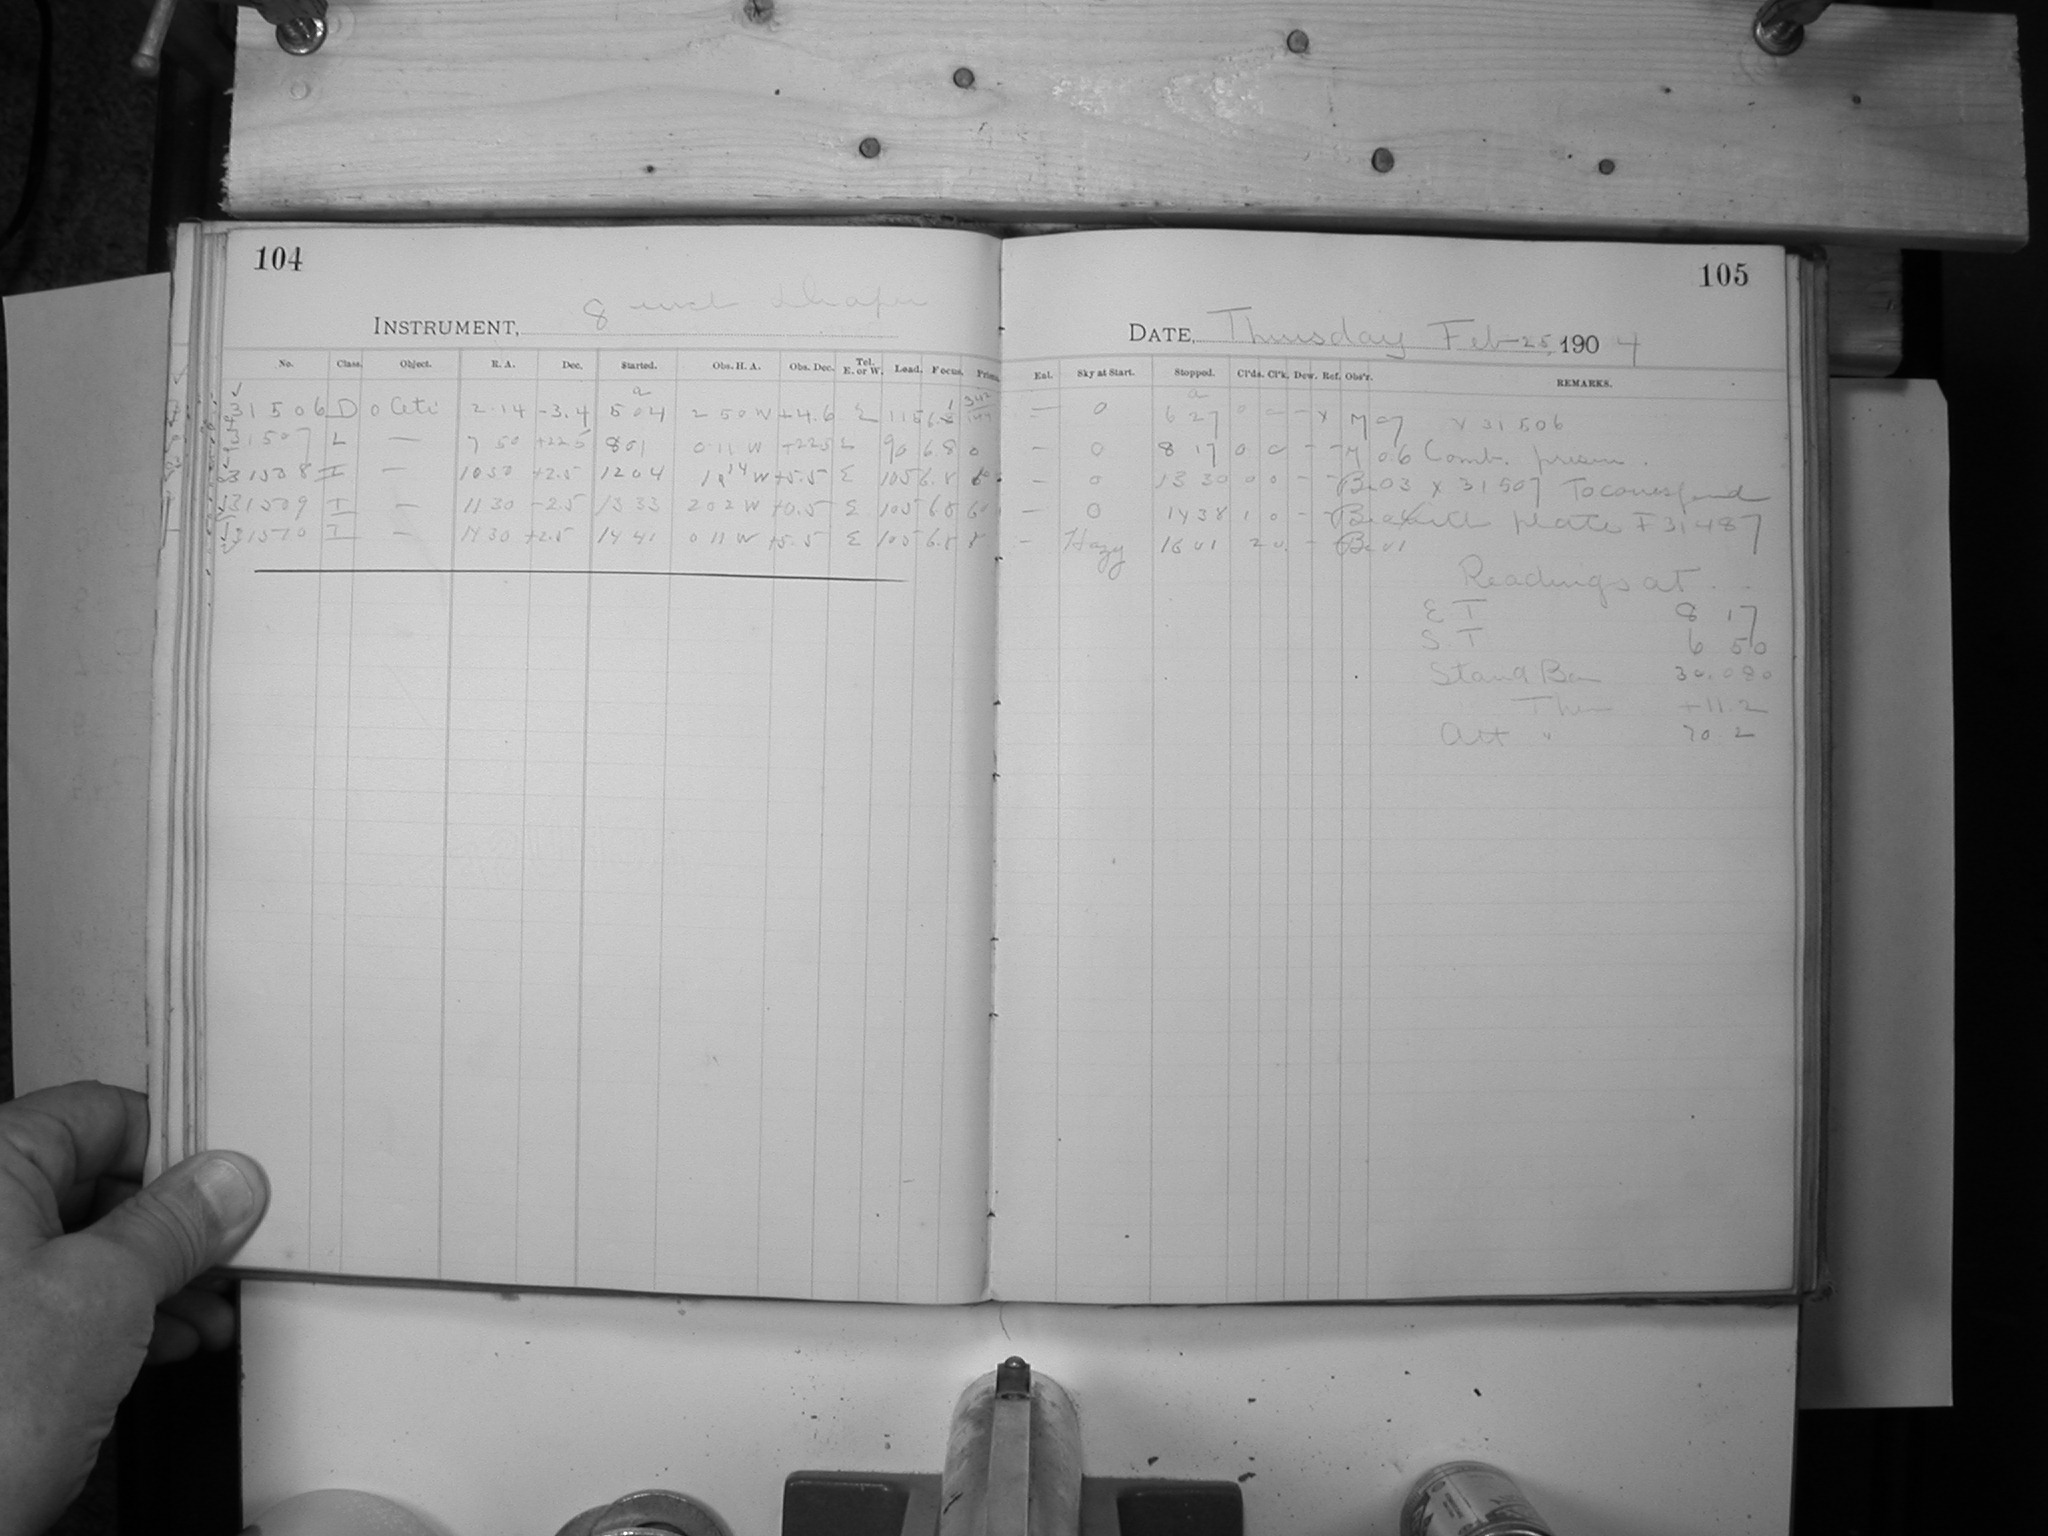 104
INSTRUMENT, 8 inch Draper
No. Class. Object. R. A. Dec. Started. Obs. H. A. Obs. Dec. Tel. E. or W. Load. Focus. Prism.
a
31506 D o Ceti 2 14 -3.4 5 04 2 50 W +4.6 E 115 6.8
1507 L — 7 50 +22.5 8 01 0 11 W +22.5 L 90 6.8 0
31508 I — 10 50 +2.5 12 04 1 14 W +5.5 E 105 6.8
31509 I — 11 30 -2.5 13 33 2 02 W +0.5 E 105 6.8
31510 I — 14 30 +2.5 14 41 0 11 W +5.5 E 105 6.8 8
105
DATE, Thursday Feb 25, 1904
Eal. Sky at Start. Stopped. Cl'ds. Cl'k. Dew. Ref. Obs'r. REMARKS.
a
— 0 6 27 0 0 — x M 07 x 31506
— 0 8 17 0 0 — — M 06 Comb. prism.
— 0 13 30 0 0 — — Be 03 x 31507 To correspond
— 0 14 38 1 0 — — Be with plate I 31487
— Hazy 16 01 2 0 — Be 01
Readings at
E T 8 17
S. T 6 50
Stand Bar 30.080
Ther +11.2
Att " 70.2